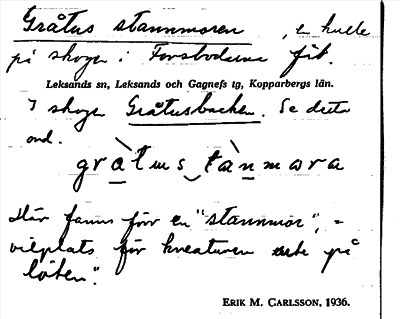 Gråtus stannmoren, en kulle
på skogen i Forsbodarna fäb.
Leksands sn, Leksands och Gagnefs tg, Kopparbergs län.
I skogen Gråtusbacken. Se detta
ord.
gràtus tànmara
Här fanns förr en "stannmor", =
vilplats för kreaturen ute på
löten".
ERIK M. CARLSSON, 1936.